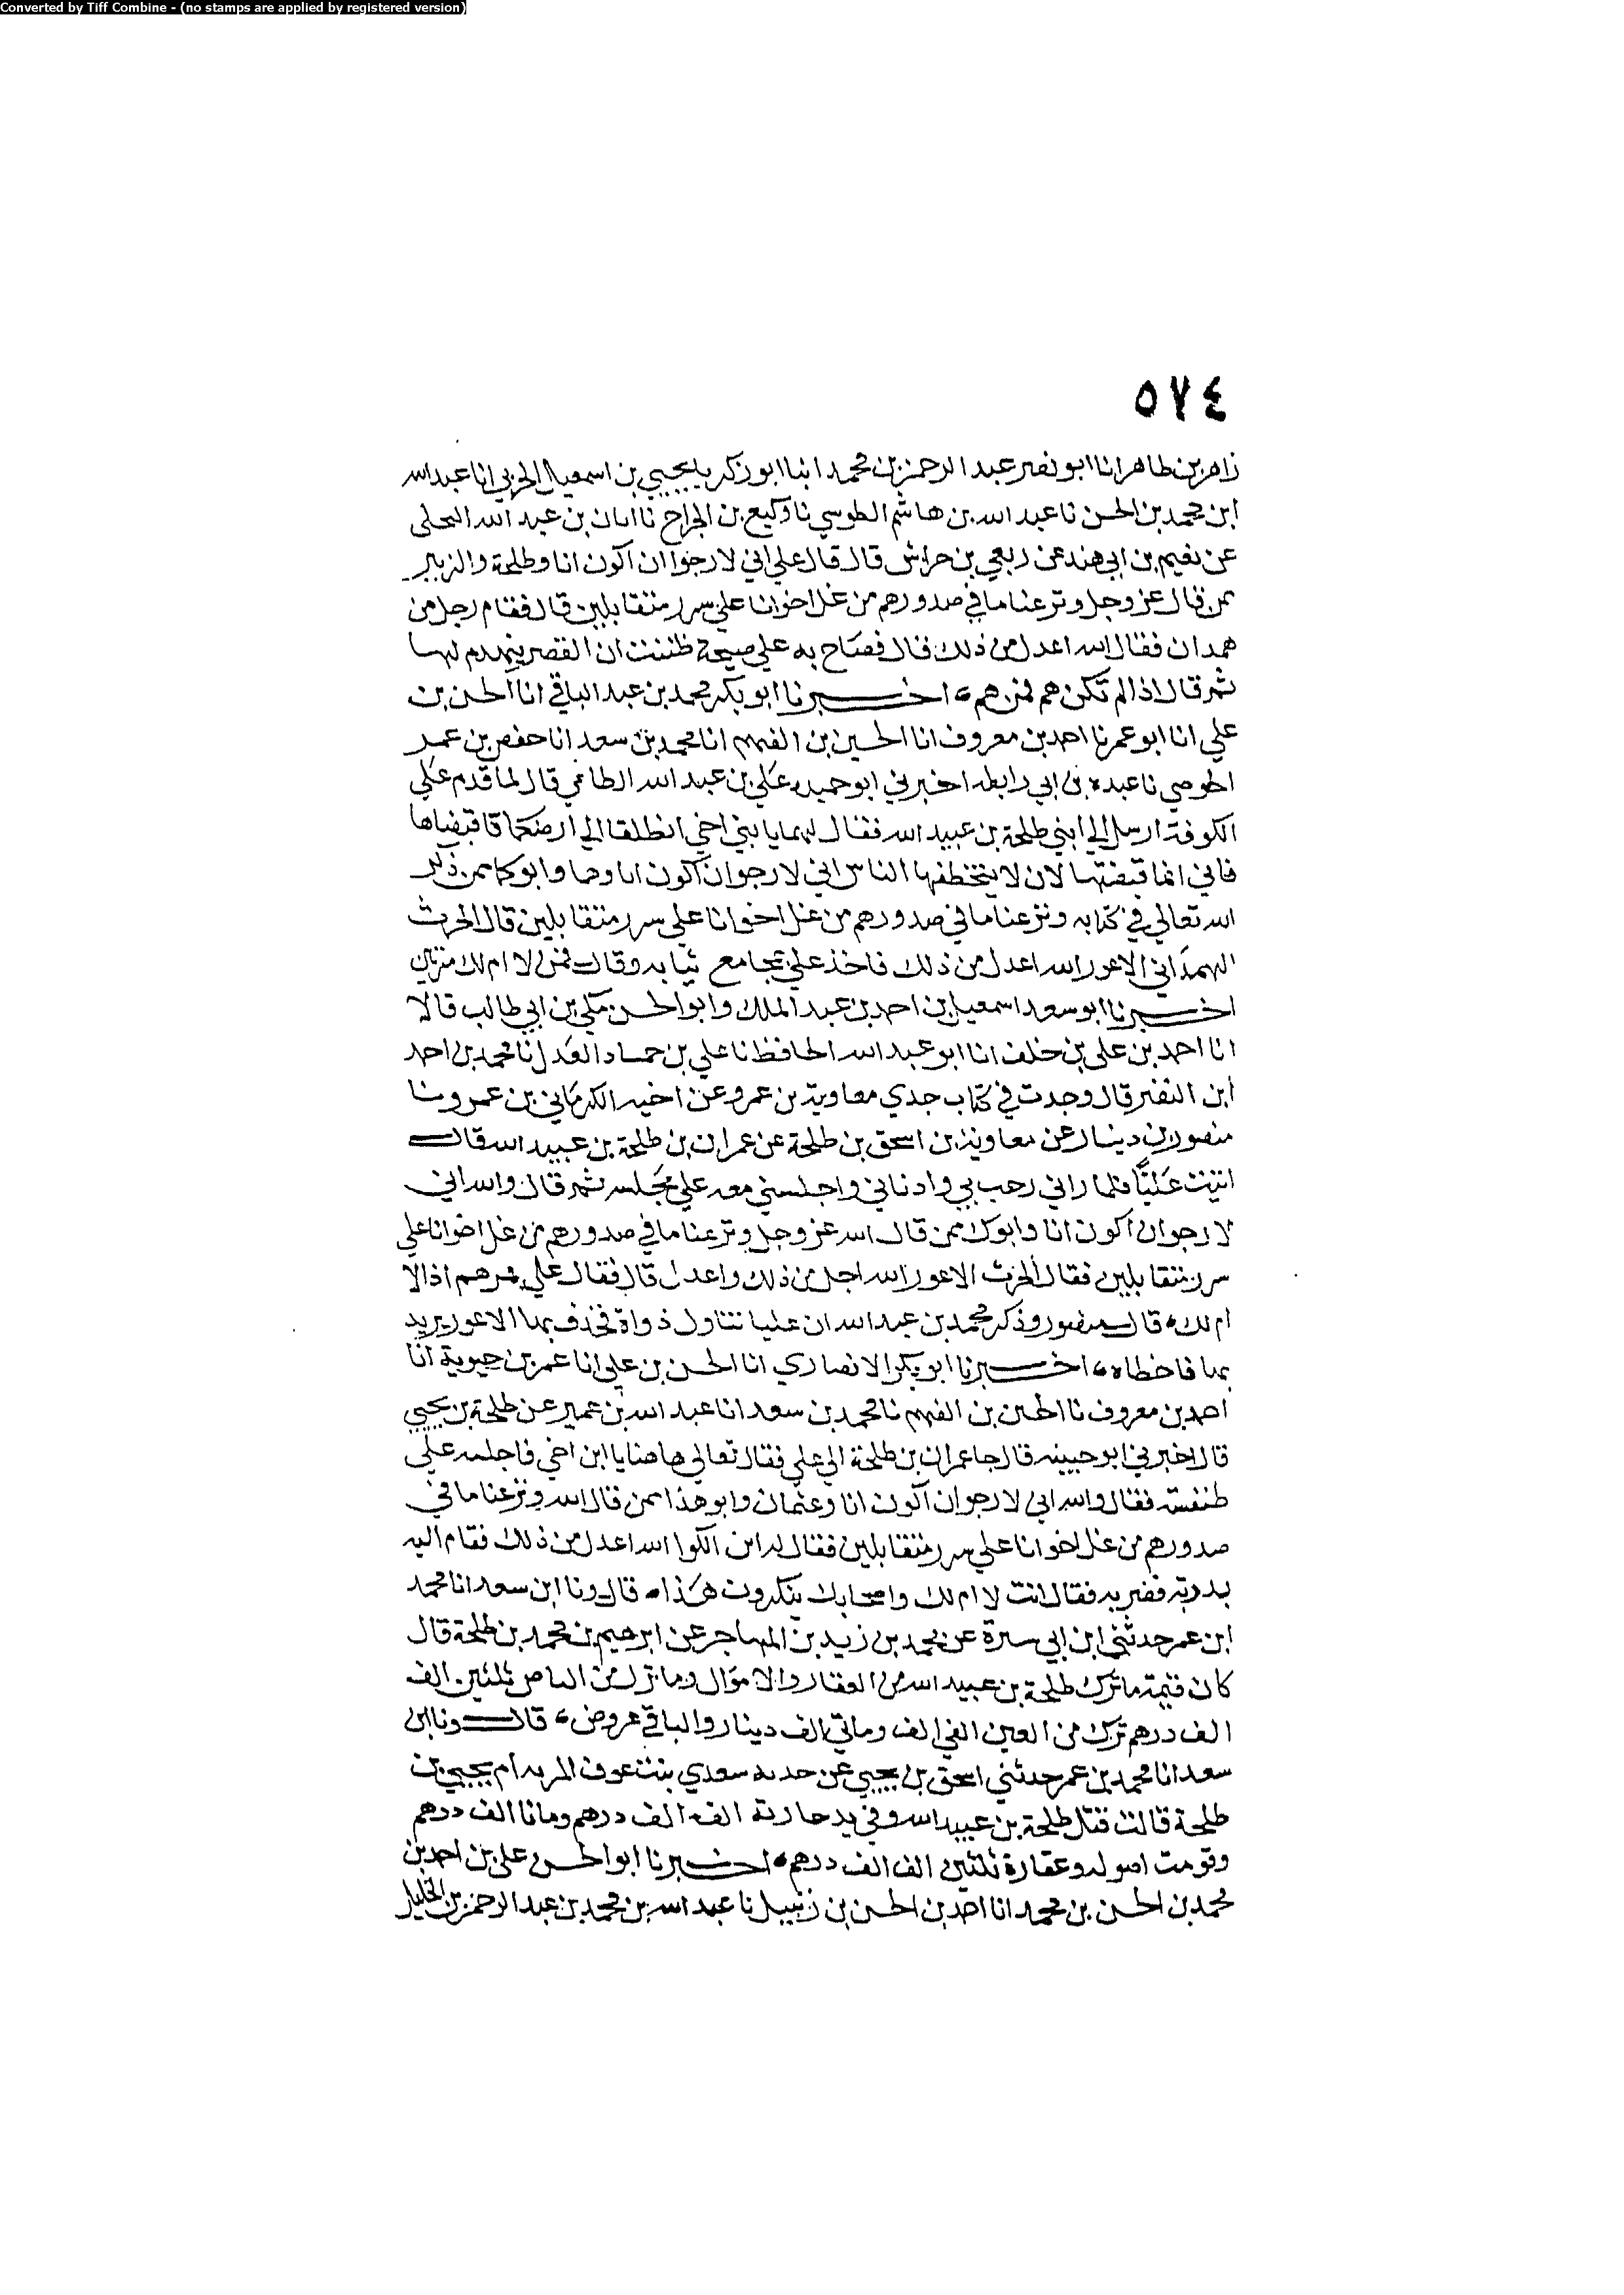 Converted by Tiff Combine - (no stamps are applied by registered version)
٥٧٤
زاهر بن طاهر انا ابو نصر عبد الرحمن بن محمد ابنا ابو زكريا يحيي بن اسمعيل الحربي انا عبد الله
ابن محمد بن الحسن نا عبد الله بن هاشم الطوسي نا وكيع بن الجراح نا ابان بن عبد الله البجلي
عن نعيم بن ابي هند عن ربعي بن حراش قال قال علي اني لارجوا ان اكون انا وطلحة والزبير
ممن قال عز وجل ونزعنا ما في صدورهم من غل اخوانا علي سرر متقابلين قال فقام رجل من
همدان فقال الله اعدل من ذلك قال فصاح به علي صيحة ظننت ان القصر ينهدم لها
ثم قال اذا لم تكن هم فمن هم اخبرنا ابو بكر محمد بن عبد الباقي انا الحسن بن
علي انا ابو عمر نا احمد بن معروف انا الحسين بن الفهم انا محمد بن سعد انا حفص بن عمر
الحوضي نا عبده بن ابي رابطه اخبرني ابو حميده علي بن عبد الله الطاعي قال لما قدم علي
الكوفة ارسل الي ابني طلحة بن عبيد الله فقال لهما يا بني اخي انطلقا الي ارضكما فاقبضاها
فاني انما قبضتها لان لا يتخطفها الناس اني لارجوا ان اكون انا وابوكما ممن ذكر
الله تعالي في كتابه ونزعنا ما في صدورهم من غل اخوانا على سرر متقابلين قال الحرث
الهمداني الاعور الله اعدل من ذلك فاخذ علي بمجامع ثيابه وقال فمن لا ام لك مرتين
اخبرنا ابو سعد اسمعيل بن احمد بن عبد الملك وابو الحسن مكي بن ابي طالب قالا
انا احمد بن علي بن خلف انا ابو عبد الله الحافظ نا علي بن حمساد العدل نا محمد بن احمد
ابن النضر قال وجدت في كتاب جدي معاوية بن عمرو عن اخيه الكرماني بن عمرو نا
منصور بن دينار عن معاوية بن اسحق بن طلحة عن عمران بن طلحة بن عبيد الله قال
اتيت عليًّا فلما راني رحب بي وادناني واجلسني معه علي مجلسه ثم قال والله اني
لارجوا ان اكون انا وابوك ممن قال الله عز وجل ونزعنا ما في صدورهم من غل اخوانا علي
سرر متقابلين فقال الحرث الاعور الله اجل من ذلك واعدل قال فقال علي فمن هم اذا لا
ام لك قال منصور وذكر محمد بن عبد الله ان عليا تناول دواة فحذف بها الاعور يريد
بها فاخطاه اخبرنا ابو بكر الانصاري انا الحسن بن علي انا عمر بن حيوية انا
احمد بن معروف نا الحسين بن الفهم نا محمد بن سعد انا عبد الله بن عمير عن طلحة بن يحيي
قال اخبرني ابو حبيبه قال جا عمران بن طلحة الي علي فقال تعالي هاهنا يا ابن اخي فاجلسه علي
طنفسة فقال والله اني لارجوا ان اكون انا وعثمان وابو هذا ممن قال الله ونزعنا ما في
صدورهم من غل اخوانا علي سرر متقابلين فقال له ابن الكوا الله اعدل من ذلك فقام اليه
بدرته فضربه فقال انت لا ام لك واصحابك ينكرون هذا قال ونا ابن سعد انا محمد
ابن عمر حدثني ابن ابي سبرة عن محمد بن زيد بن المهاجر عن ابرهيم بن محمد بن طلحة قال
كان قيمة ما ترك طلحة بن عبيد الله من العقار والاموال وما ترك من الناض ثلثين الف
الف درهم ترك من العين الفي الف وماتي الف دينار والباقي عروض قال ونا ابن
سعد انا محمد بن عمر حدثني اسحق بن يحيي عن جدته سعدي بنت عوف المريه ام يحيي بن
طلحة قالت قتل طلحة بن عبيد الله وفي يد خازنه الف الف درهم ومائتا الف درهم
وقومت اصوله وعقاره ثلثين الف الف درهم اخبرنا ابو الحسن علي بن احمد بن
محمد بن الحسن بن محمد انا احمد بن الحسن بن زنبيل نا عبد الله بن محمد بن عبد الرحمن بن الخليل